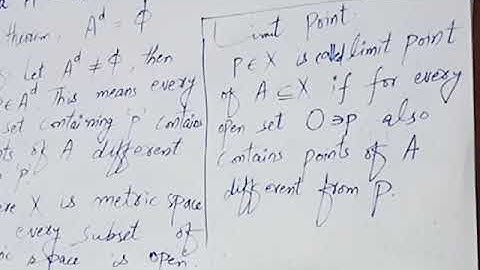 theorem, A^d = ϕ
Let A^d ≠ ϕ, then
p ∈ A^d This means every
set containing 'p' contains
of A different
'p'.
X is metric space
every subset of
space is open.
Limit Point.
p ∈ X is called limit point
of A ⊆ X if for every
open set O∋p also
contains points of A
different from p.